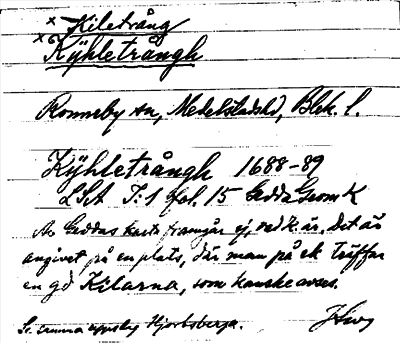 × Kiletrång
× Kÿhletrångh
Ronneby sn, Medelstads hd, Blek. l.
Kÿhletrångh 1688-89
LSA T:1 fol. 15 Gedda GeomK
Av Geddas karta framgår ej, vad k. är. Det är
angivet på en plats, där man på ek träffar
en gd Kilarna, som kanske avses.
Se samma uppslag Hjortsberga.